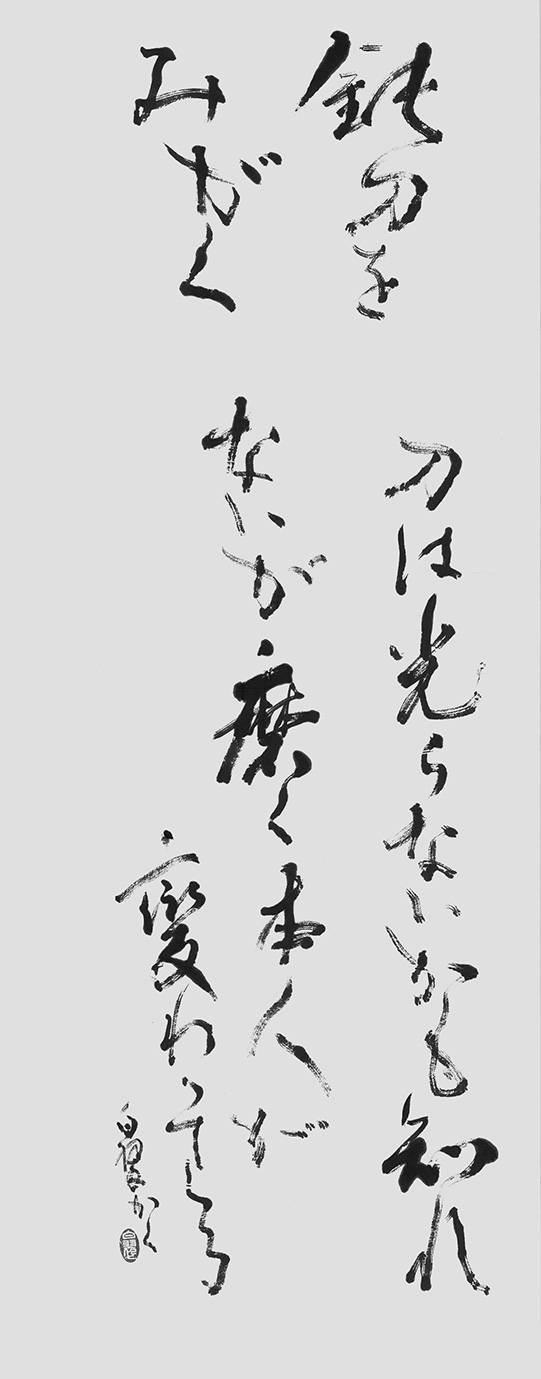 鈍刀を
みがく
刀は光らないかも知れ
ないが磨く本人が
變わってくる
かく